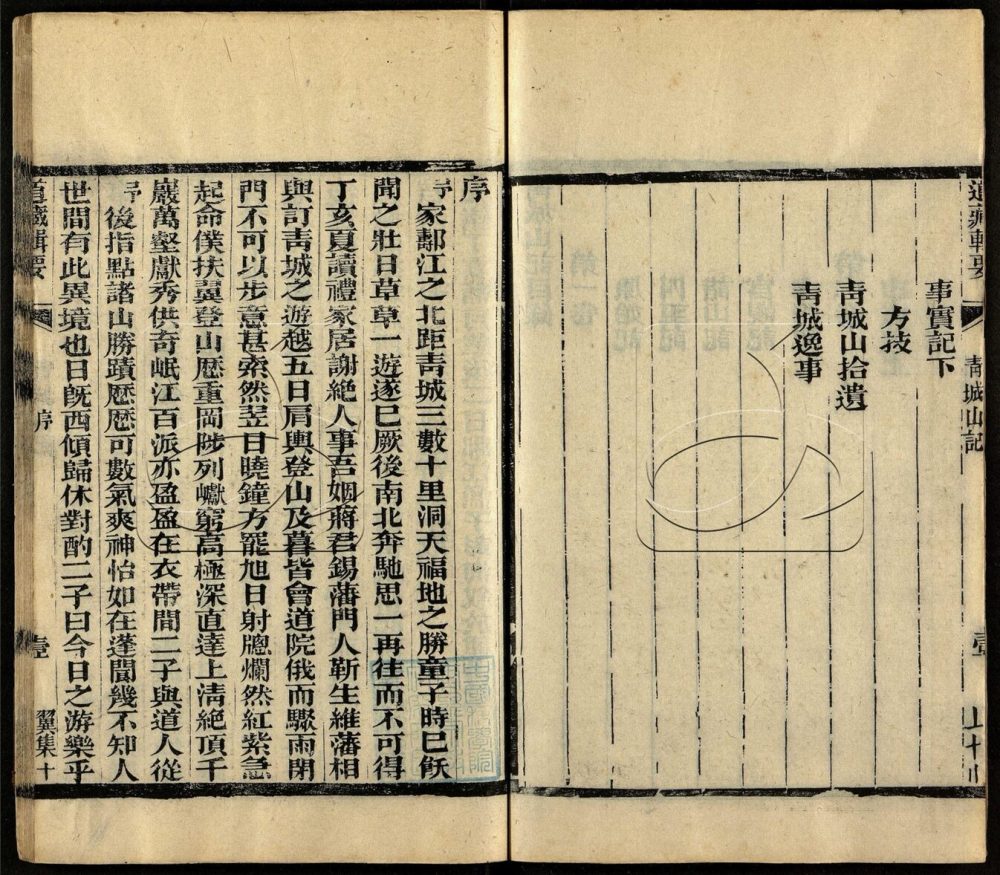 道藏輯要
青城山記
事實記下
方技
青城山拾遺
青城逸事
序
予家鄰江之北距青城三數十里洞天福地之勝童子時已飫
聞之壯日草草一遊遂已厥後南北奔馳思一再往而不可得
丁亥夏讀禮家居謝絕人事吾姻蔣君錫藩門人靳生維藩相
與訂青城之游越五日肩輿登山及暮皆會道院俄而驟雨閉
門不可以步意甚索然翌日曉鐘方罷旭日射牕爛然紅紫急
起命僕扶翼登山歷重岡陟列巘窮高極深直達上清絕頂千
巖萬壑獻秀供奇岷江百派亦盈盈在衣帶間二子與道人從
予後指點諸山勝蹟歷歷可數氣爽神怡如在蓬閬幾不知人
世間有此異境也日旣西傾歸休對酌二子曰今日之游樂乎
道藏輯要
序
壹
翼集十